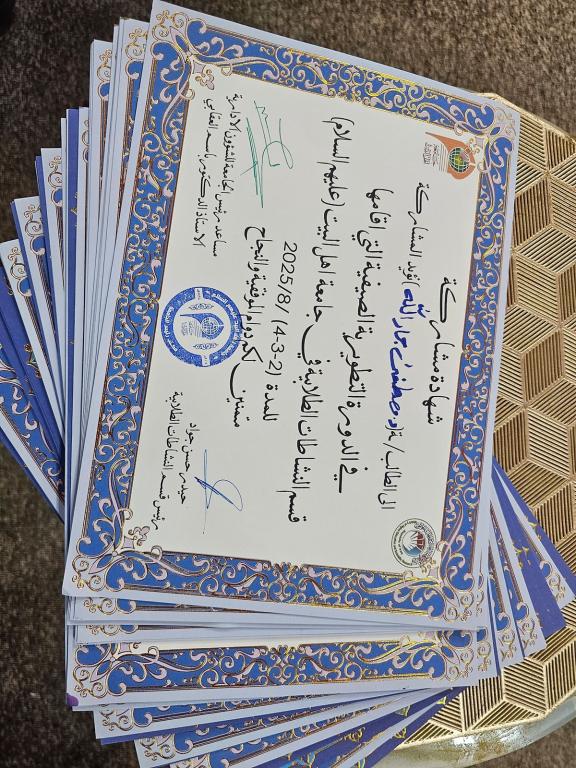 شهادة مشاركة
نؤيد المشاركة
الى الطالب/ـة (د. مصطفى جار الله)
في الدورة التطويرية الصيفية التي اقامها
قسم النشاطات الطلابية في جامعة اهل البيت (عليهم السلام)
للمدة (2-3-4) /8/ 2025
متمنين لكم دوام الموفقية والنجاح
حيدر حسن جواد
رئيس قسم النشاطات الطلابية
مساعد رئيس الجامعة للشؤون الادارية
الاستاذ الدكتور باسم العقابي